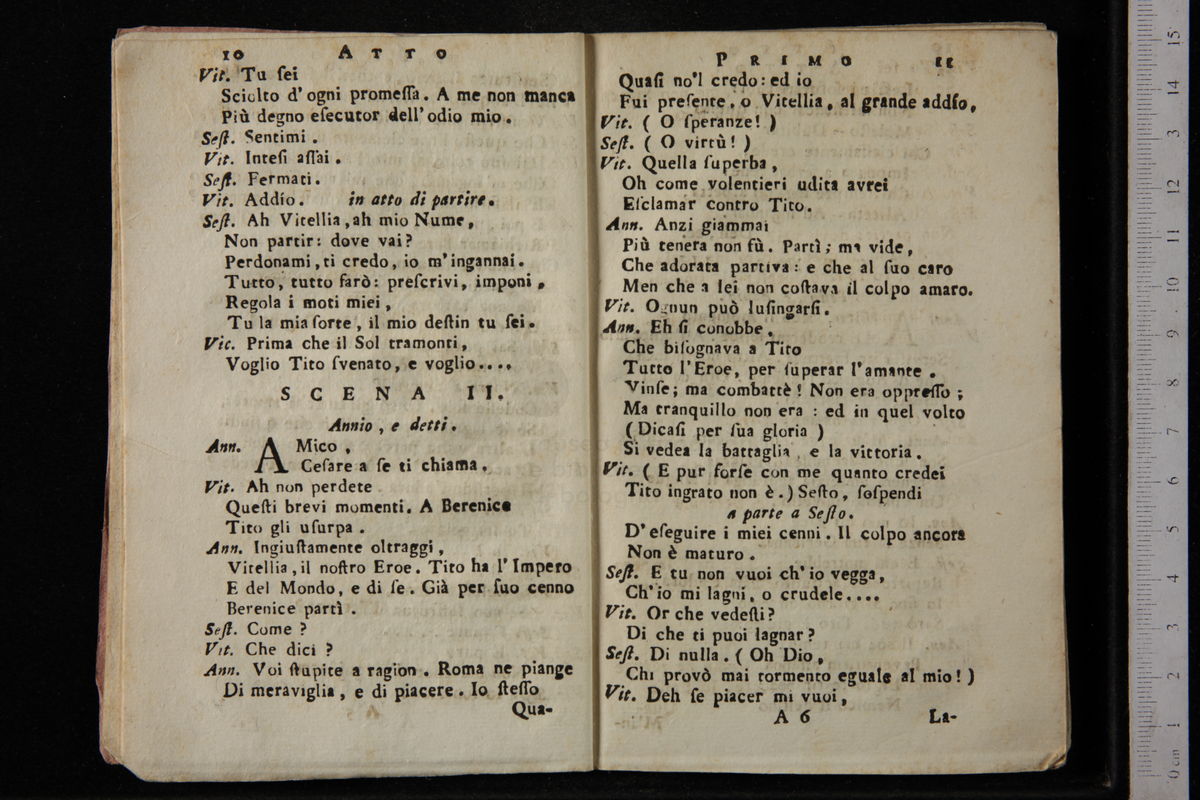 10 ATTO
Vit. Tu ſei
Sciolto d'ogni promeſſa. A me non manca
Più degno eſecutor dell'odio mio.
Seſt. Sentimi.
Vit. Inteſi aſſai.
Seſt. Fermati.
Vit. Addio. in atto di partire.
Seſt. Ah Vitellia, ah mio Nume,
Non partir: dove vai?
Perdonami, ti credo, io m'ingannai.
Tutto, tutto farò: preſcrivi, imponi,
Regola i moti miei,
Tu la mia ſorte, il mio deſtin tu ſei.
Vic. Prima che il Sol tramonti,
Voglio Tito ſvenato, e voglio....
SCENA II.
Annio, e detti.
Ann. AMico,
Ceſare a ſe ti chiama.
Vit. Ah non perdete
Queſti brevi momenti. A Berenice
Tito gli uſurpa.
Ann. Ingiuſtamente oltraggi,
Vitellia, il noſtro Eroe. Tito ha l'Impero
E del Mondo, e di ſe. Già per ſuo cenno
Berenice partì.
Seſt. Come?
Vit. Che dici?
Ann. Voi ſtupite a ragion. Roma ne piange
Di meraviglia, e di piacere. Io ſteſſo
Qua-
PRIMO 11
Quaſi no'l credo: ed io
Fui preſente, o Vitellia, al grande addſo,
Vit. ( O ſperanze! )
Seſt. ( O virtù! )
Vit. Quella ſuperba,
Oh come volentieri udita avrei
Eſclamar contro Tito.
Ann. Anzi giammai
Più tenera non fù. Partì; ma vide,
Che adorata partiva: e che al ſuo caro
Men che a lei non coſtava il colpo amaro.
Vit. Ognun può luſingarſi.
Ann. Eh ſi conobbe,
Che biſognava a Tito
Tutto l'Eroe, per ſuperar l'amante.
Vinſe; ma combattè! Non era oppreſſo;
Ma tranquillo non era: ed in quel volto
(Dicaſi per ſua gloria)
Si vedea la battaglia, e la vittoria.
Vit. ( E pur forſe con me quanto credei
Tito ingrato non è.) Seſto, ſoſpendi
a parte a Seſto.
D'eſeguire i miei cenni. Il colpo ancora
Non è maturo.
Seſt. E tu non vuoi ch'io vegga,
Ch'io mi lagni, o crudele....
Vit. Or che vedeſti?
Di che ti puoi lagnar?
Seſt. Di nulla. ( Oh Dio,
Chi provò mai tormento eguale al mio! )
Vit. Deh ſe piacer mi vuoi,
A 6 La-
0 cm 1 2 3 4 5 6 7 8 9 10 11 12 13 14 15